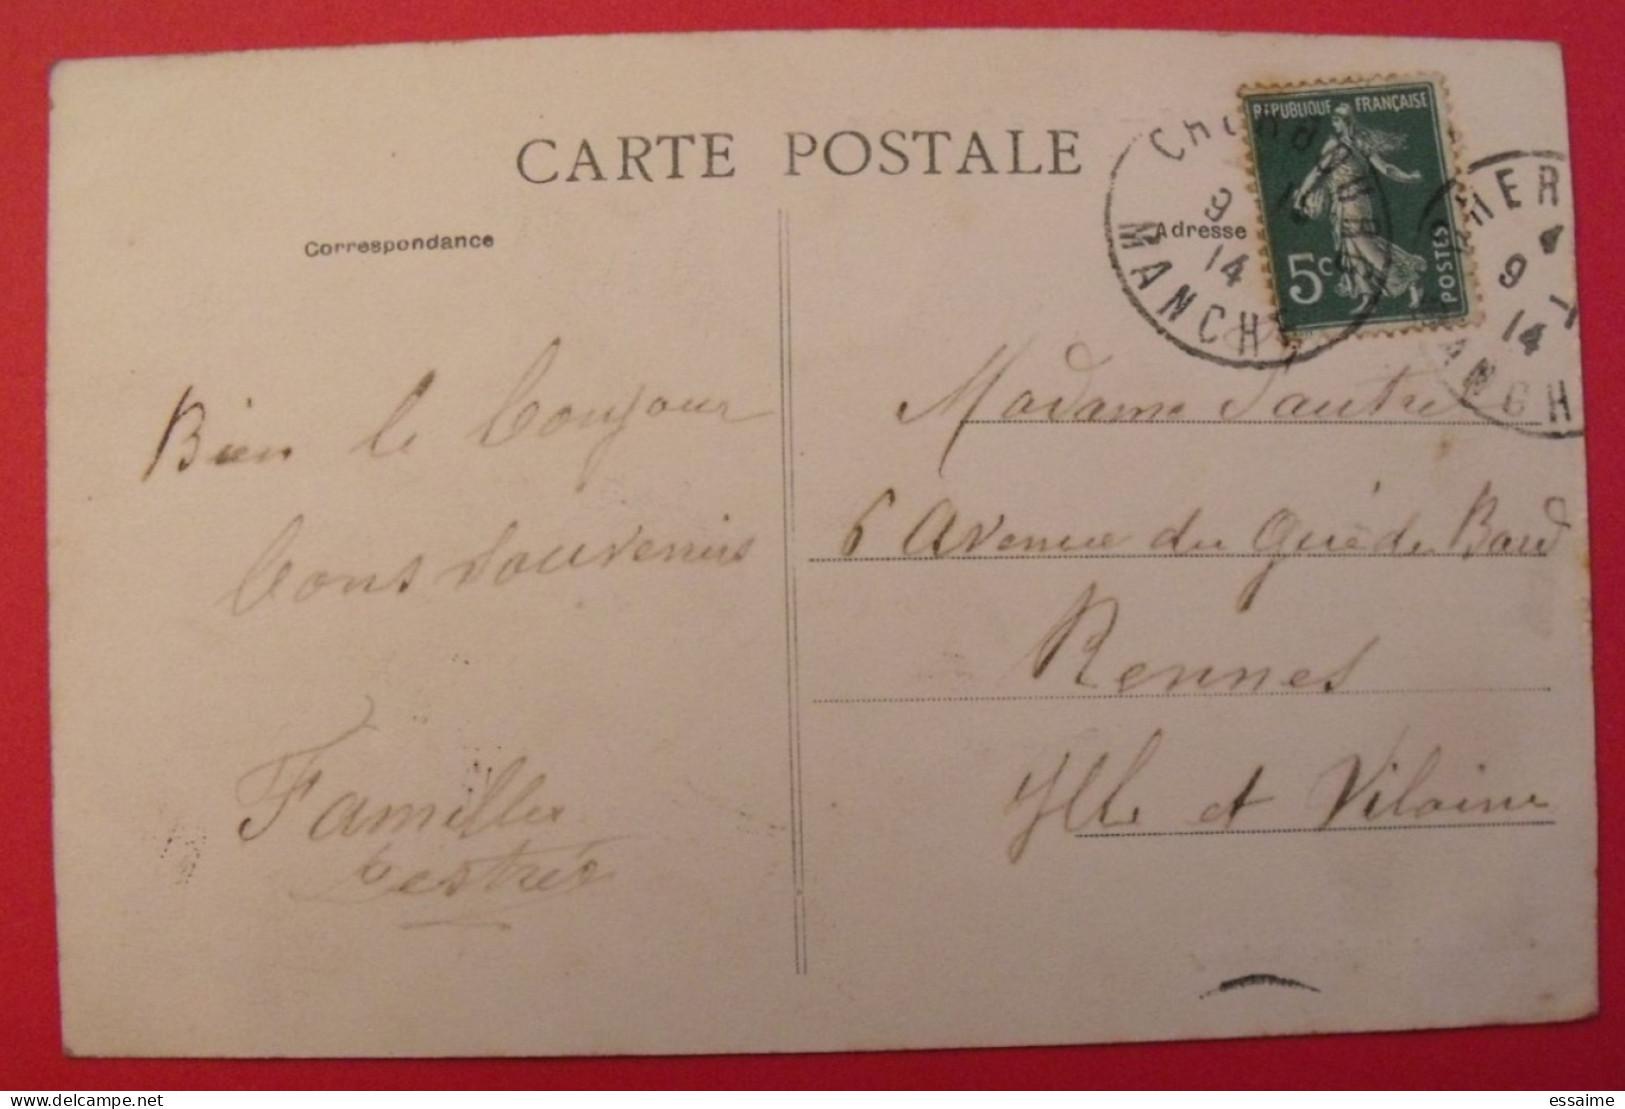 CARTE POSTALE
Correspondance
Adresse
RÉPUBLIQUE FRANÇAISE
5c
POSTES
CHERBOURG
9
14
MANCHE
CHER
9 -1
14
MANCH
Bien le bonjour
bons souvenirs
Famille
Madame
6 Avenue du Gué du Baud
Rennes
Ille et Vilaine
essaime